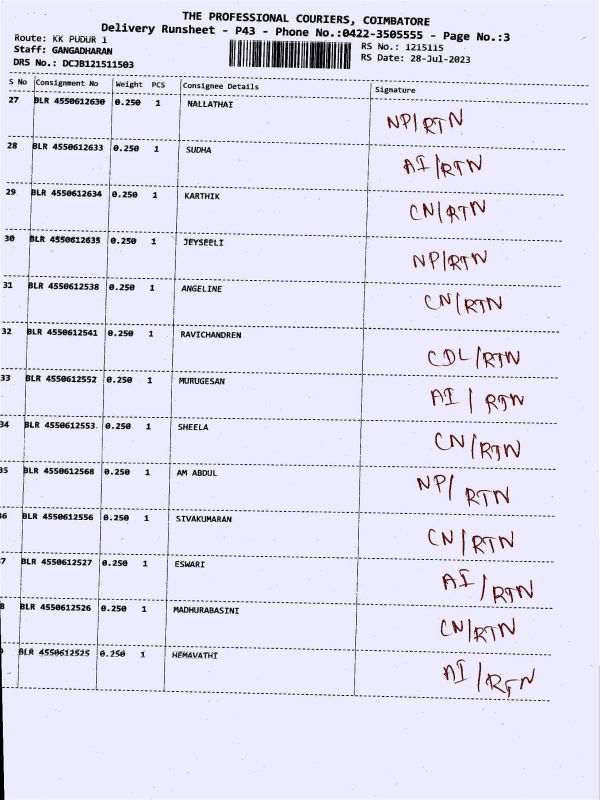 THE PROFESSIONAL COURIERS, COIMBATORE
Delivery Runsheet - P43 - Phone No.:0422-3505555 - Page No.:3
Route: KK PUDUR 1
RS No.: 1215115
Staff: GANGADHARAN
RS Date: 28-Jul-2023
DRS No.: DCJB121511503
S No Consignment No Weight PCS Consignee Details Signature
27 BLR 4550612630 0.250 1 NALLATHAI NP/RTN
28 BLR 4550612633 0.250 1 SUDHA AI/RTN
29 BLR 4550612634 0.250 1 KARTHIK CN/RTN
30 BLR 4550612635 0.250 1 JEYSEELI NP/RTN
31 BLR 4550612538 0.250 1 ANGELINE CN/RTN
32 BLR 4550612541 0.250 1 RAVICHANDREN CDL/RTN
33 BLR 4550612552 0.250 1 MURUGESAN AI/RTN
34 BLR 4550612553 0.250 1 SHEELA CN/RTN
35 BLR 4550612568 0.250 1 AM ABDUL NP/RTN
6 BLR 4550612556 0.250 1 SIVAKUMARAN CN/RTN
7 BLR 4550612527 0.250 1 ESWARI AI/RTN
8 BLR 4550612526 0.250 1 MADHURABASINI CN/RTN
BLR 4550612525 0.250 1 HEMAVATHI AI/RTN